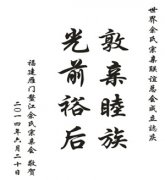 世界余氏宗亲联谊总会成立志庆
敦亲睦族
光前裕后
福建雁门鳌江余氏宗亲会 敬贺
二〇一四年六月二十日